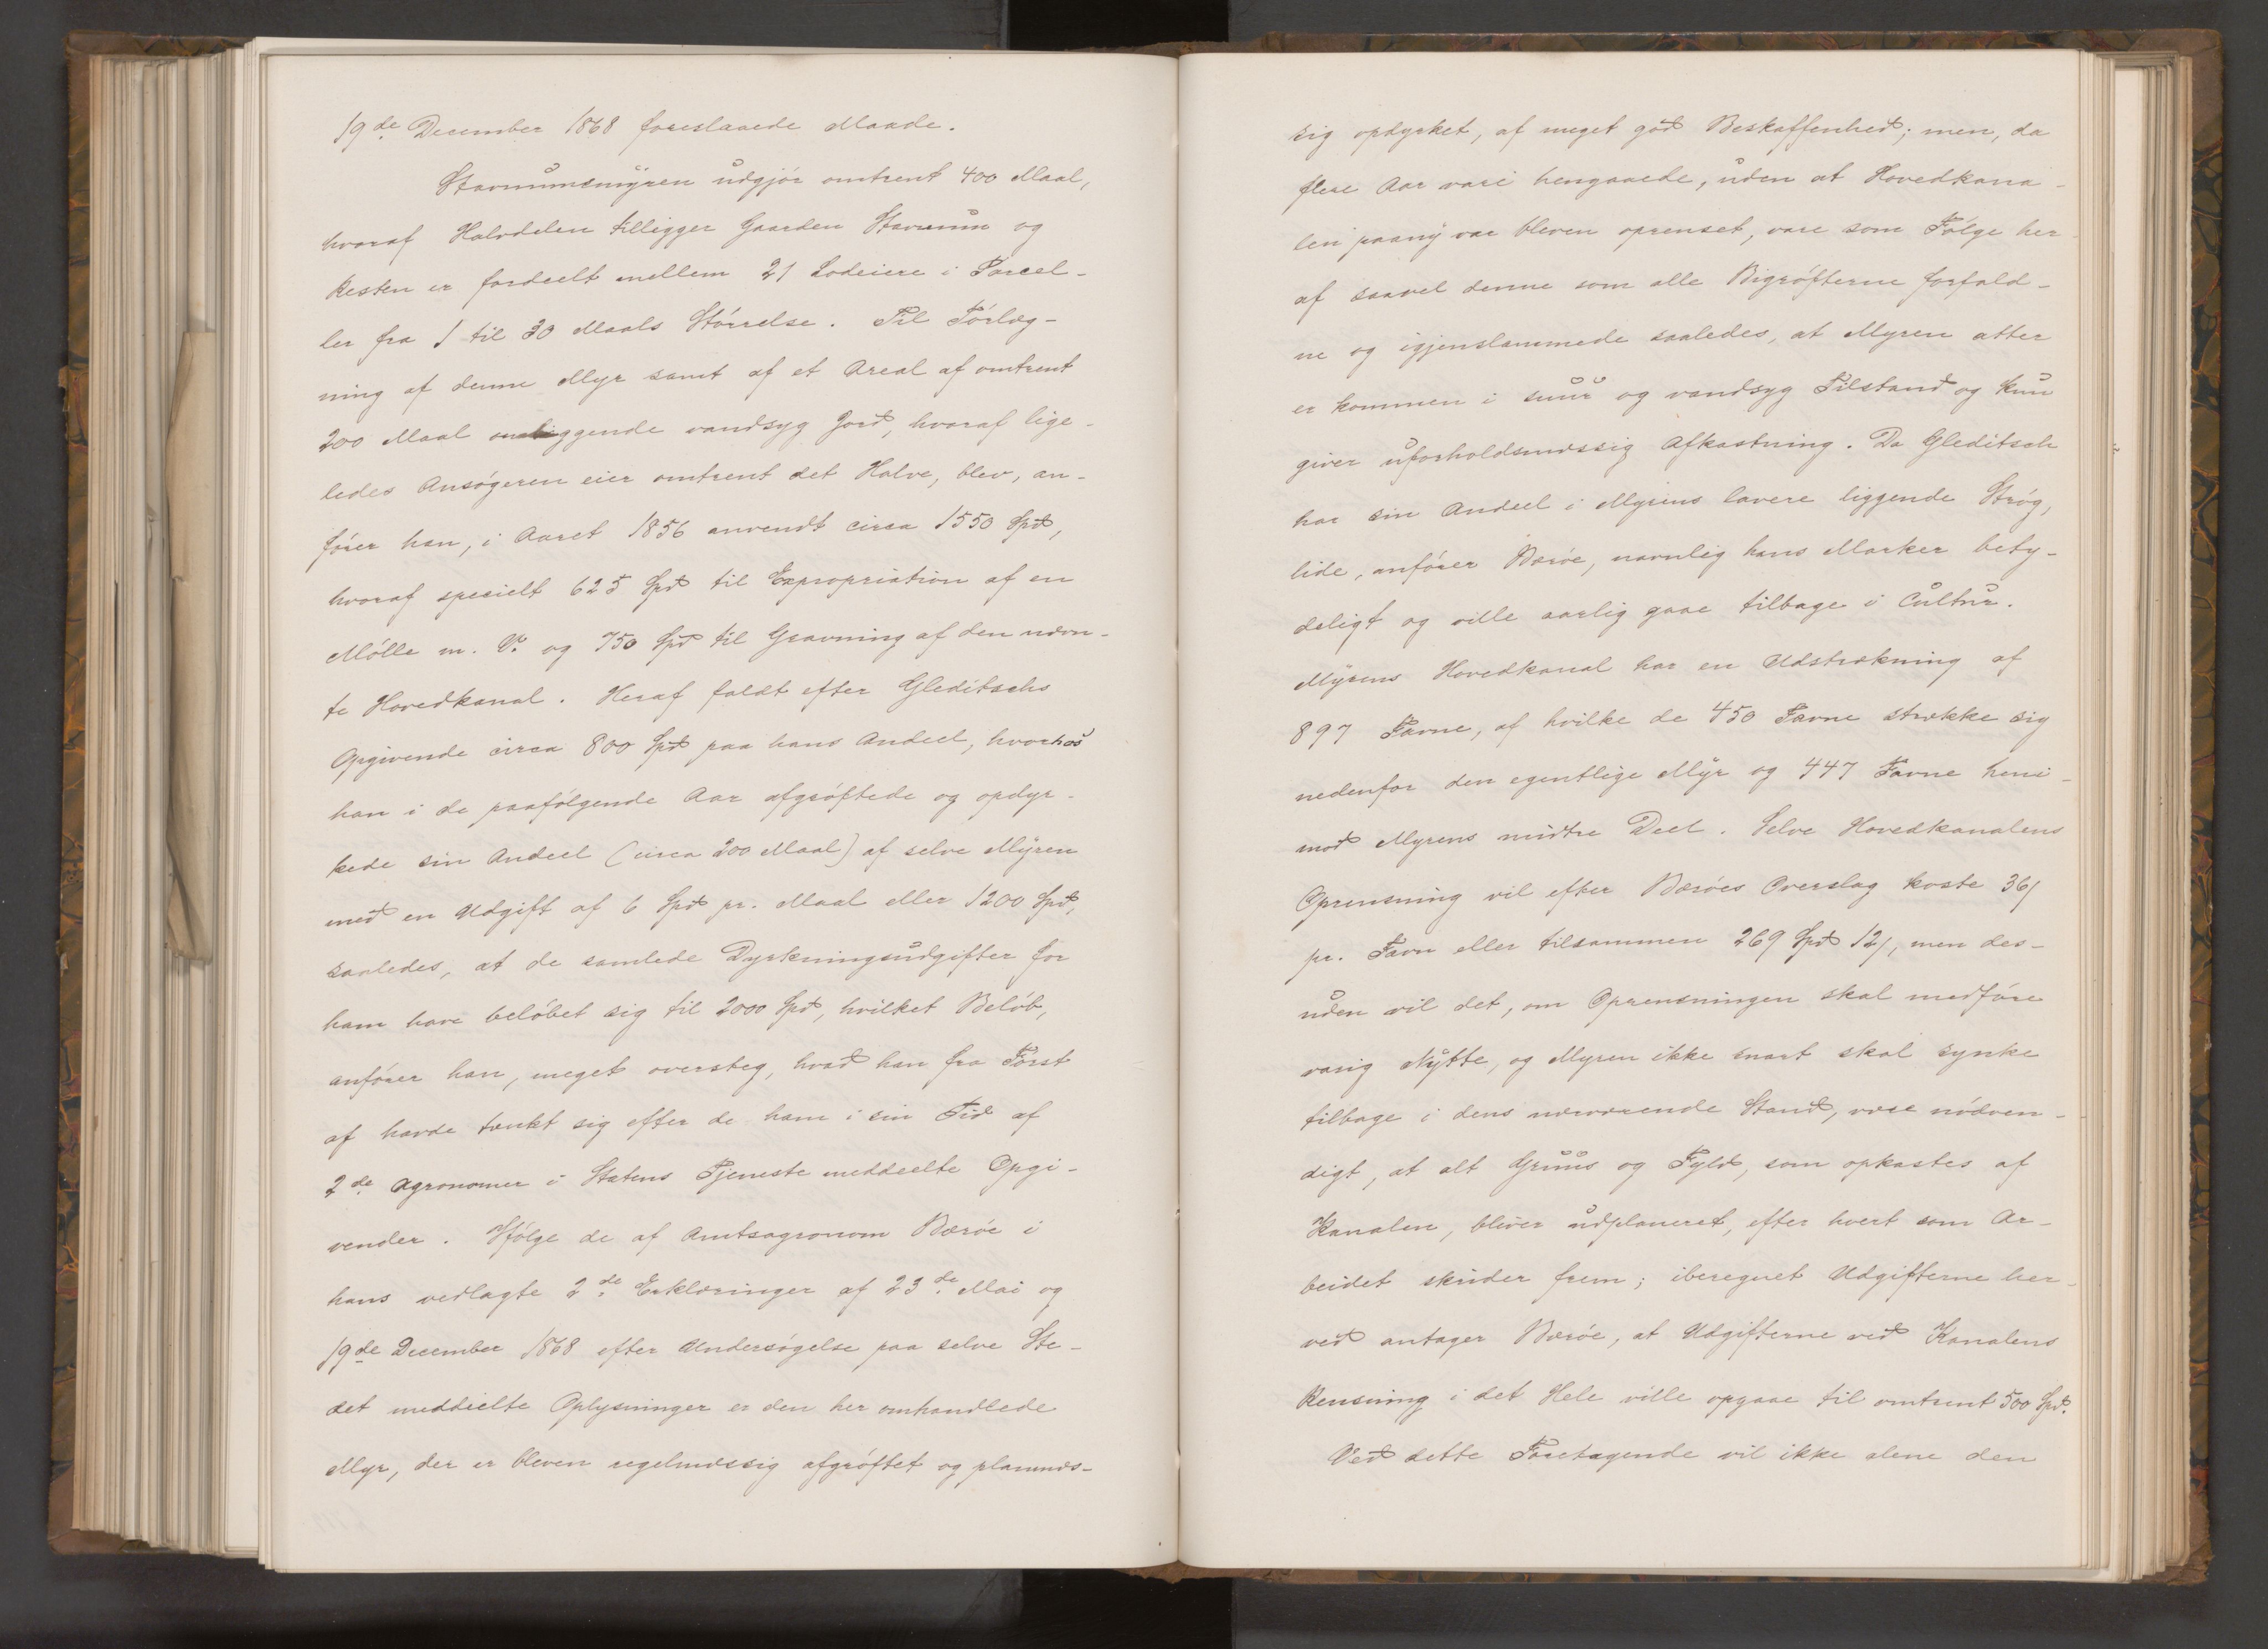 19de December 1868 foreslaaede Maade.
Stavnumsmyren udgjør omtrent 400 Maal,
hvoraf Halvdelen tilligger Gaarden Stavnum og
Resten er fordeelt mellem 21 Lodeiere i Parcel-
ler fra 1 til 30 Maals Størrelse. Til Tørlæg-
ning af denne Myr samt af et Areal af omtrent
200 Maal omliggende vandsyg Jord, hvoraf lige-
ledes Ansøgeren eier omtrent det Halve, blev, an-
fører han, i Aaret 1856 anvendt circa 1550 Spd,
hvoraf specielt 625 Spd til Expropriation af en
Mølle m. V. og 750 Spd til Gravning af den nævn-
te Hovedkanal. Heraf faldt efter Gleditschs
Opgivende circa 800 Spd paa hans Andeel, hvorhos
han i de paafølgende Aar afgrøftede og opdyr-
kede sin Andeel (circa 200 Maal) af selve Myren
med en Udgift af 6 Spd pr. Maal eller 1200 Spd,
saaledes, at de samlede Dyrkningsudgifter for
ham have beløbet sig til 2000 Spd, hvilket Beløb,
anfører han, meget oversteg, hvad han fra Først
af havde tænkt sig efter de ham i sin Tid af
2de Agronomer i Statens Tjeneste meddeelte Opgi-
vender. Ifølge de af Amtsagronom Barøe i
hans vedlagte 2de Erklæringer af 23de Mai og
19de December 1868 efter Undersøgelse paa selve Ste-
det meddeelte Oplysninger er den her omhandlede
Myr, der er bleven regelmæssig afgrøftet og planmæs-
sig opdyrket, af meget god Beskaffenhed; men, da
flere Aar vare hengaaede, uden at Hovedkana-
len paany var bleven oprenset, vare som Følge her-
af saavel denne som alle Bigrøfterne forfald-
ne og igjenslammede saaledes, at Myren atter
er kommen i suur og vandsyg Tilstand og kun
giver uforholdsmæssig Afkastning. Da Gleditsch
har sin Andeel i Myrens lavere liggende Strøg,
lide, anfører Barøe, navnlig hans Marker bety-
deligt og ville aarlig gaae tilbage i Cultur.
Myrens Hovedkanal har en Udstrækning af
897 Favne, af hvilke de 450 Favne strække sig
nedenfor den egentlige Myr og 447 Favne heni-
mod Myrens midtre Deel. Selve Hovedkanalens
Oprensning vil efter Barøes Overslag koste 36/
pr. Favn eller tilsammen 269 Spd 12/, men des-
uden vil det, om Oprensningen skal medføre
varig Nytte, og Myren ikke snart skal synke
tilbage i dens nærværende Stand, være nødven-
digt, at alt Gruus og Fyld, som opkastes af
Kanalen, bliver udplaneret, efter hvert som Ar-
beidet skrider frem; iberegnet Udgifterne her-
ved antager Barøe, at Udgifterne ved Kanalens
Rensning i det Hele ville opgaae til omtrent 500 Spd.
Ved dette Foretagende vil ikke alene den